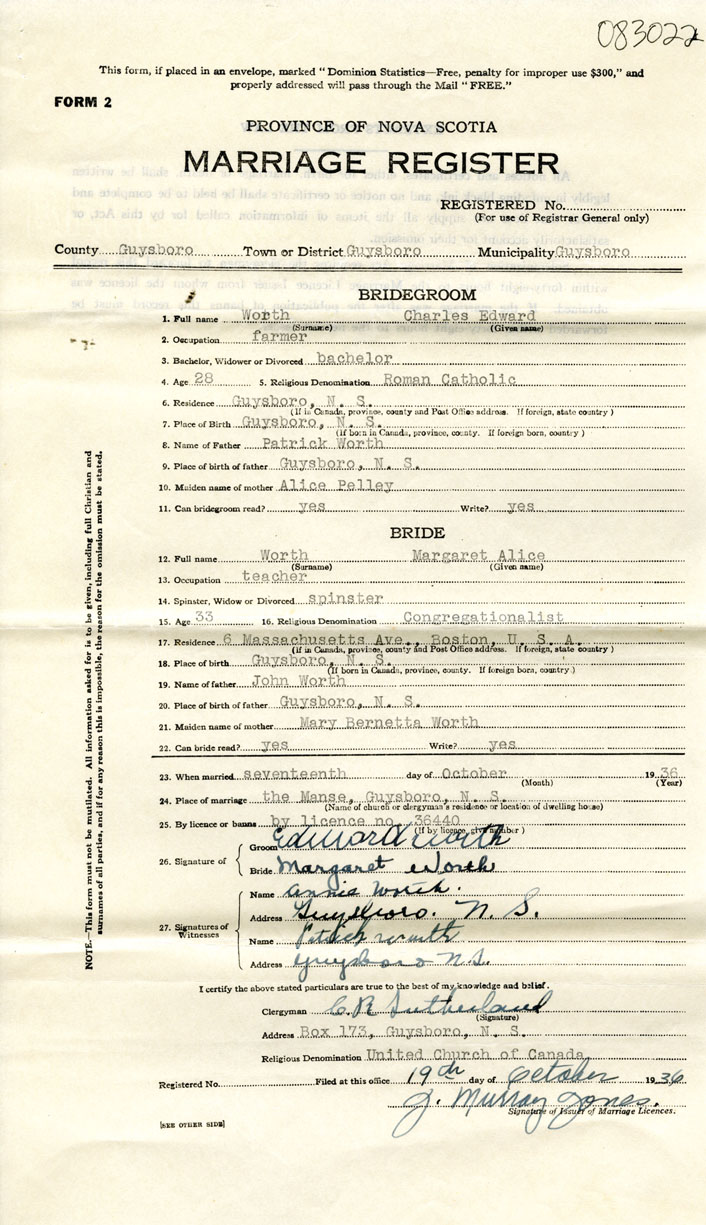 083022
This form, if placed in an envelope, marked "Dominion Statistics—Free, penalty for improper use $300," and
properly addressed will pass through the Mail "FREE."
FORM 2
PROVINCE OF NOVA SCOTIA
MARRIAGE REGISTER
REGISTERED No.
(For use of Registrar General only)
County Guysboro Town or District Guysboro Municipality Guysboro
BRIDEGROOM
1. Full name Worth Charles Edward
(Surname) (Given name)
2. Occupation farmer
3. Bachelor, Widower or Divorced bachelor
4. Age 28 5. Religious Denomination Roman Catholic
6. Residence Guysboro, N. S.
(If in Canada, province, county and Post Office address. If foreign, state country)
7. Place of Birth Guysboro, N. S.
(If born in Canada, province, county. If foreign born, country)
8. Name of Father Patrick Worth
9. Place of birth of father Guysboro, N. S.
10. Maiden name of mother Alice Pelley
11. Can bridegroom read? yes Write? yes
BRIDE
12. Full name Worth Margaret Alice
(Surname) (Given name)
13. Occupation teacher
14. Spinster, Widow or Divorced spinster
15. Age 33 16. Religious Denomination Congregationalist
17. Residence 6 Massachusetts Ave., Boston, U. S. A.
(if in Canada, province, county and Post Office address. If foreign, state country)
18. Place of birth Guysboro, N. S.
(If born in Canada, province, county. If foreign born, country.)
19. Name of father John Worth
20. Place of birth of father Guysboro, N. S.
21. Maiden name of mother Mary Bernetta Worth
22. Can bride read? yes Write? yes
23. When married seventeenth day of October 1936
(Month) (Year)
24. Place of marriage the Manse, Guysboro, N. S.
(Name of church or clergyman's residence or location of dwelling house)
25. By licence or banns by licence no. 36440
(If by licence, give number)
26. Signature of
Groom Edward Worth
Bride Margaret Worth
27. Signatures of Witnesses
Name Annie Worth.
Address Guysboro. N. S.
Name Patrick Worth
Address Guysboro N.S.
I certify the above stated particulars are true to the best of my knowledge and belief.
Clergyman C R Sutherland
(Signature)
Address Box 173, Guysboro, N. S.
Religious Denomination United Church of Canada
Registered No. Filed at this office 19th day of October 1936
J. Murray Jones.
Signature of Issuer of Marriage Licences.
[SEE OTHER SIDE]
NOTE.—This form must not be mutilated. All information asked for is to be given, including full Christian and
surnames of all parties, and if for any reason this is impossible, the reason for the omission must be stated.